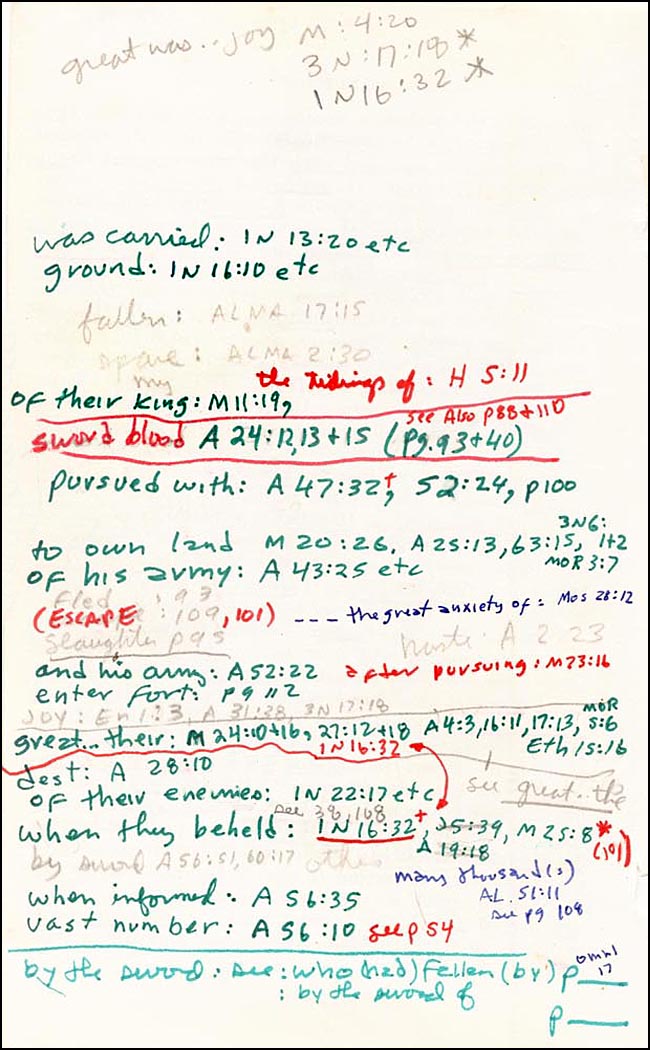 great was... joy M:4:20
3N:17:18*
1N16:32*
was carried: 1N 13:20 etc
ground: 1N 16:10 etc
fallen: ALMA 17:15
spare: ALMA 2:30
my
the tidings of: H 5:11
of their king: M11:19,
see Also p88+110
sword blood A 24:12,13+15 (pg.93+40)
pursued with: A 47:32†, 52:24, p100
3N6:
to own land M 20:26, A25:13, 63:15, 1+2
of his army: A 43:25 etc MOR 3:7
Fled : 93
(ESCAPE : 109, 101) --- the great anxiety of: Mos 28:12
Slaughter p95
haste: A 2 23
and his army: A52:22 after pursuing: M23:16
enter fort: pg 112
JOY: En 1:3, A 31:38, 3N 17:18
MOR
great...their: M 24:10+16, 27:12+18 A4:3,16:11,17:13, 5:6
1N 16:32 Eth 15:16
dest: A 28:10
of their enemies: 1N 22:17 etc
see great..the
see 38, 108
when they beheld: 1N 16:32†, 25:39, M 25:8*
A 19:18 (101)
by sword A56:51, 60:17
many thousand(s)
when informed: A 56:35
AL. 51:11
see pg 108
vast number: A 56:10 see p 54
by the sword: see: who (had) fallen (by) p
omni 17
: by the sword of
p